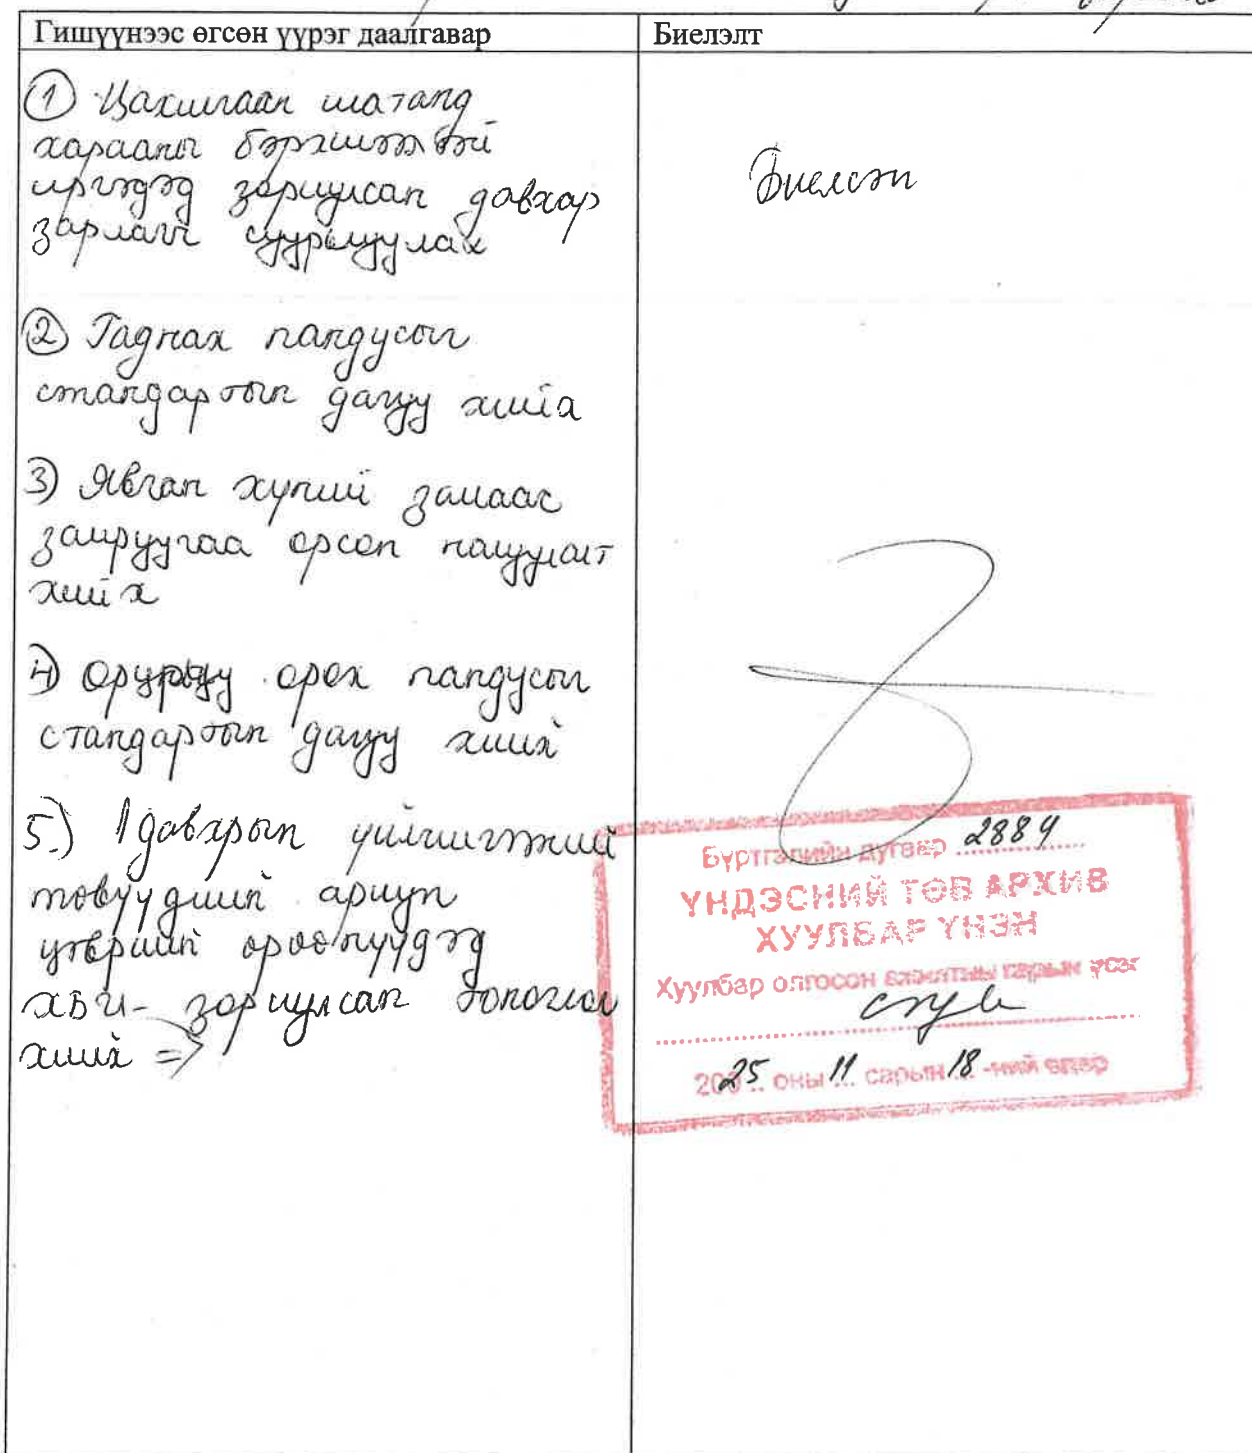 Гишүүнээс өгсөн үүрэг даалгавар
Биелэлт
① Цахилгаан шатанд
харааны бэрхшээлтэй
иргэдэд зориулсан давхар
зарлагч суурьлуулах
Биелсэн
② Гаднах пандусыг
стандартын дагуу хийх
3) Явган хүний замаас
замруугаа орсон налуулалт
хийх
4) орох пандусыг
стандартын дагуу хийх
5.) 1 давхрын үйлчилгээний
төвүүдийн ариун
цэврийн өрөөнүүдэд
ХБИ- зориулсан тоноглол
хийх =>
Бүртгэлийн дугаар 2884
ҮНДЭСНИЙ ТӨВ АРХИВ
ХУУЛБАР ҮНЭН
Хуулбар олгосон ажилтны гарын үсэг
2025 оны 11 сарын 18 -ний өдөр